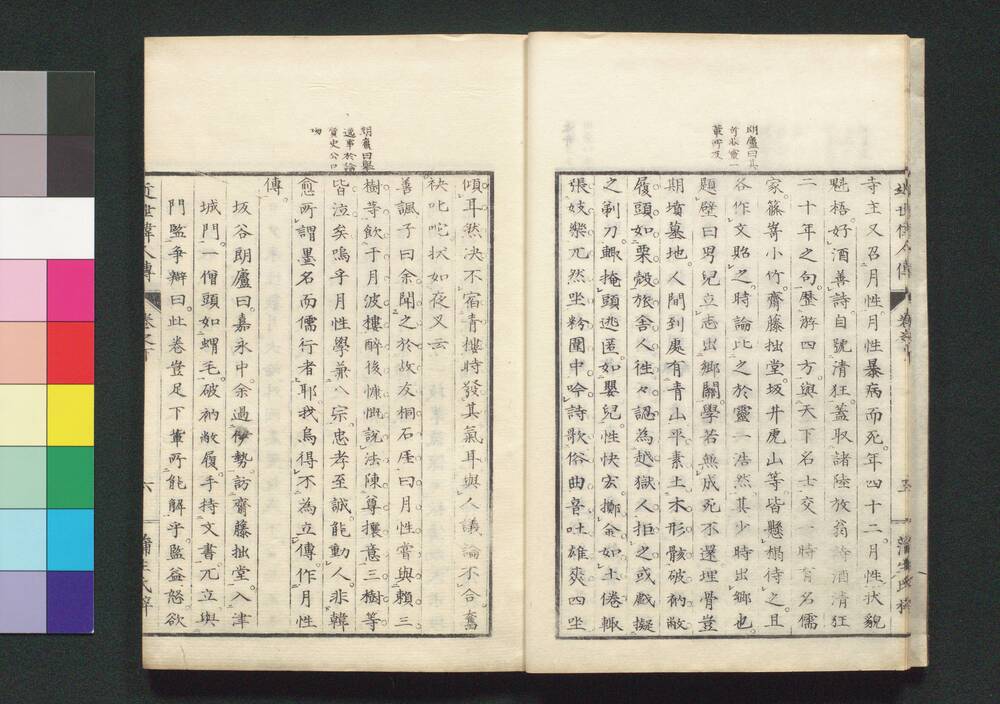 朗廬曰其
前後靈一
輩所及
寺主又召月性月性暴病而死年四十二月性狀貌
魁梧好酒善詩自號清狂蓋取諸陸放翁詩酒清狂
二十年之句歷游四方與天下名士交一時有名儒
家篠嵜小竹齋藤拙堂坂井虎山等皆懸榻待之且
各作文貽之時論比之於靈一浩然其少時出鄉也
題壁曰男兒立志出鄉關學若無成死不還埋骨豈
期墳墓地人間到處有青山平素土木形骸破衲敝
履頭如栗殼旅舍人往々認為越獄人拒之或戲擬
之剃刀輙掩頭逃匿如嬰兒性快宏擲金如土倦輙
張妓樂兀然坐粉圍中吟詩歌俗曲音吐雄爽四坐
近世偉人傳
五
蒲生氏梓
朗廬曰舉
逸事於論
贊史公口
吻
傾耳然決不宿青樓時發其氣耳與人議論不合奮
袂叱咤狀如夜叉云
善諷子曰余聞之於故友桐石厓曰月性嘗與賴三
樹等飲于月波樓醉後慷慨說法陳尊攘意三樹等
皆泣矣嗚乎月性學兼八宗忠孝至誠能動人非韓
愈所謂墨名而儒行者耶我烏得不為立傳作月性
傳
坂谷朗廬曰嘉永中余過伊勢訪齋藤拙堂入津
城門一僧頭如蝟毛破衲敝履手持文書兀立與
門監争辯曰此卷豈足下輩所能解乎監益怒欲
近世偉人傳
六
蒲生氏梓